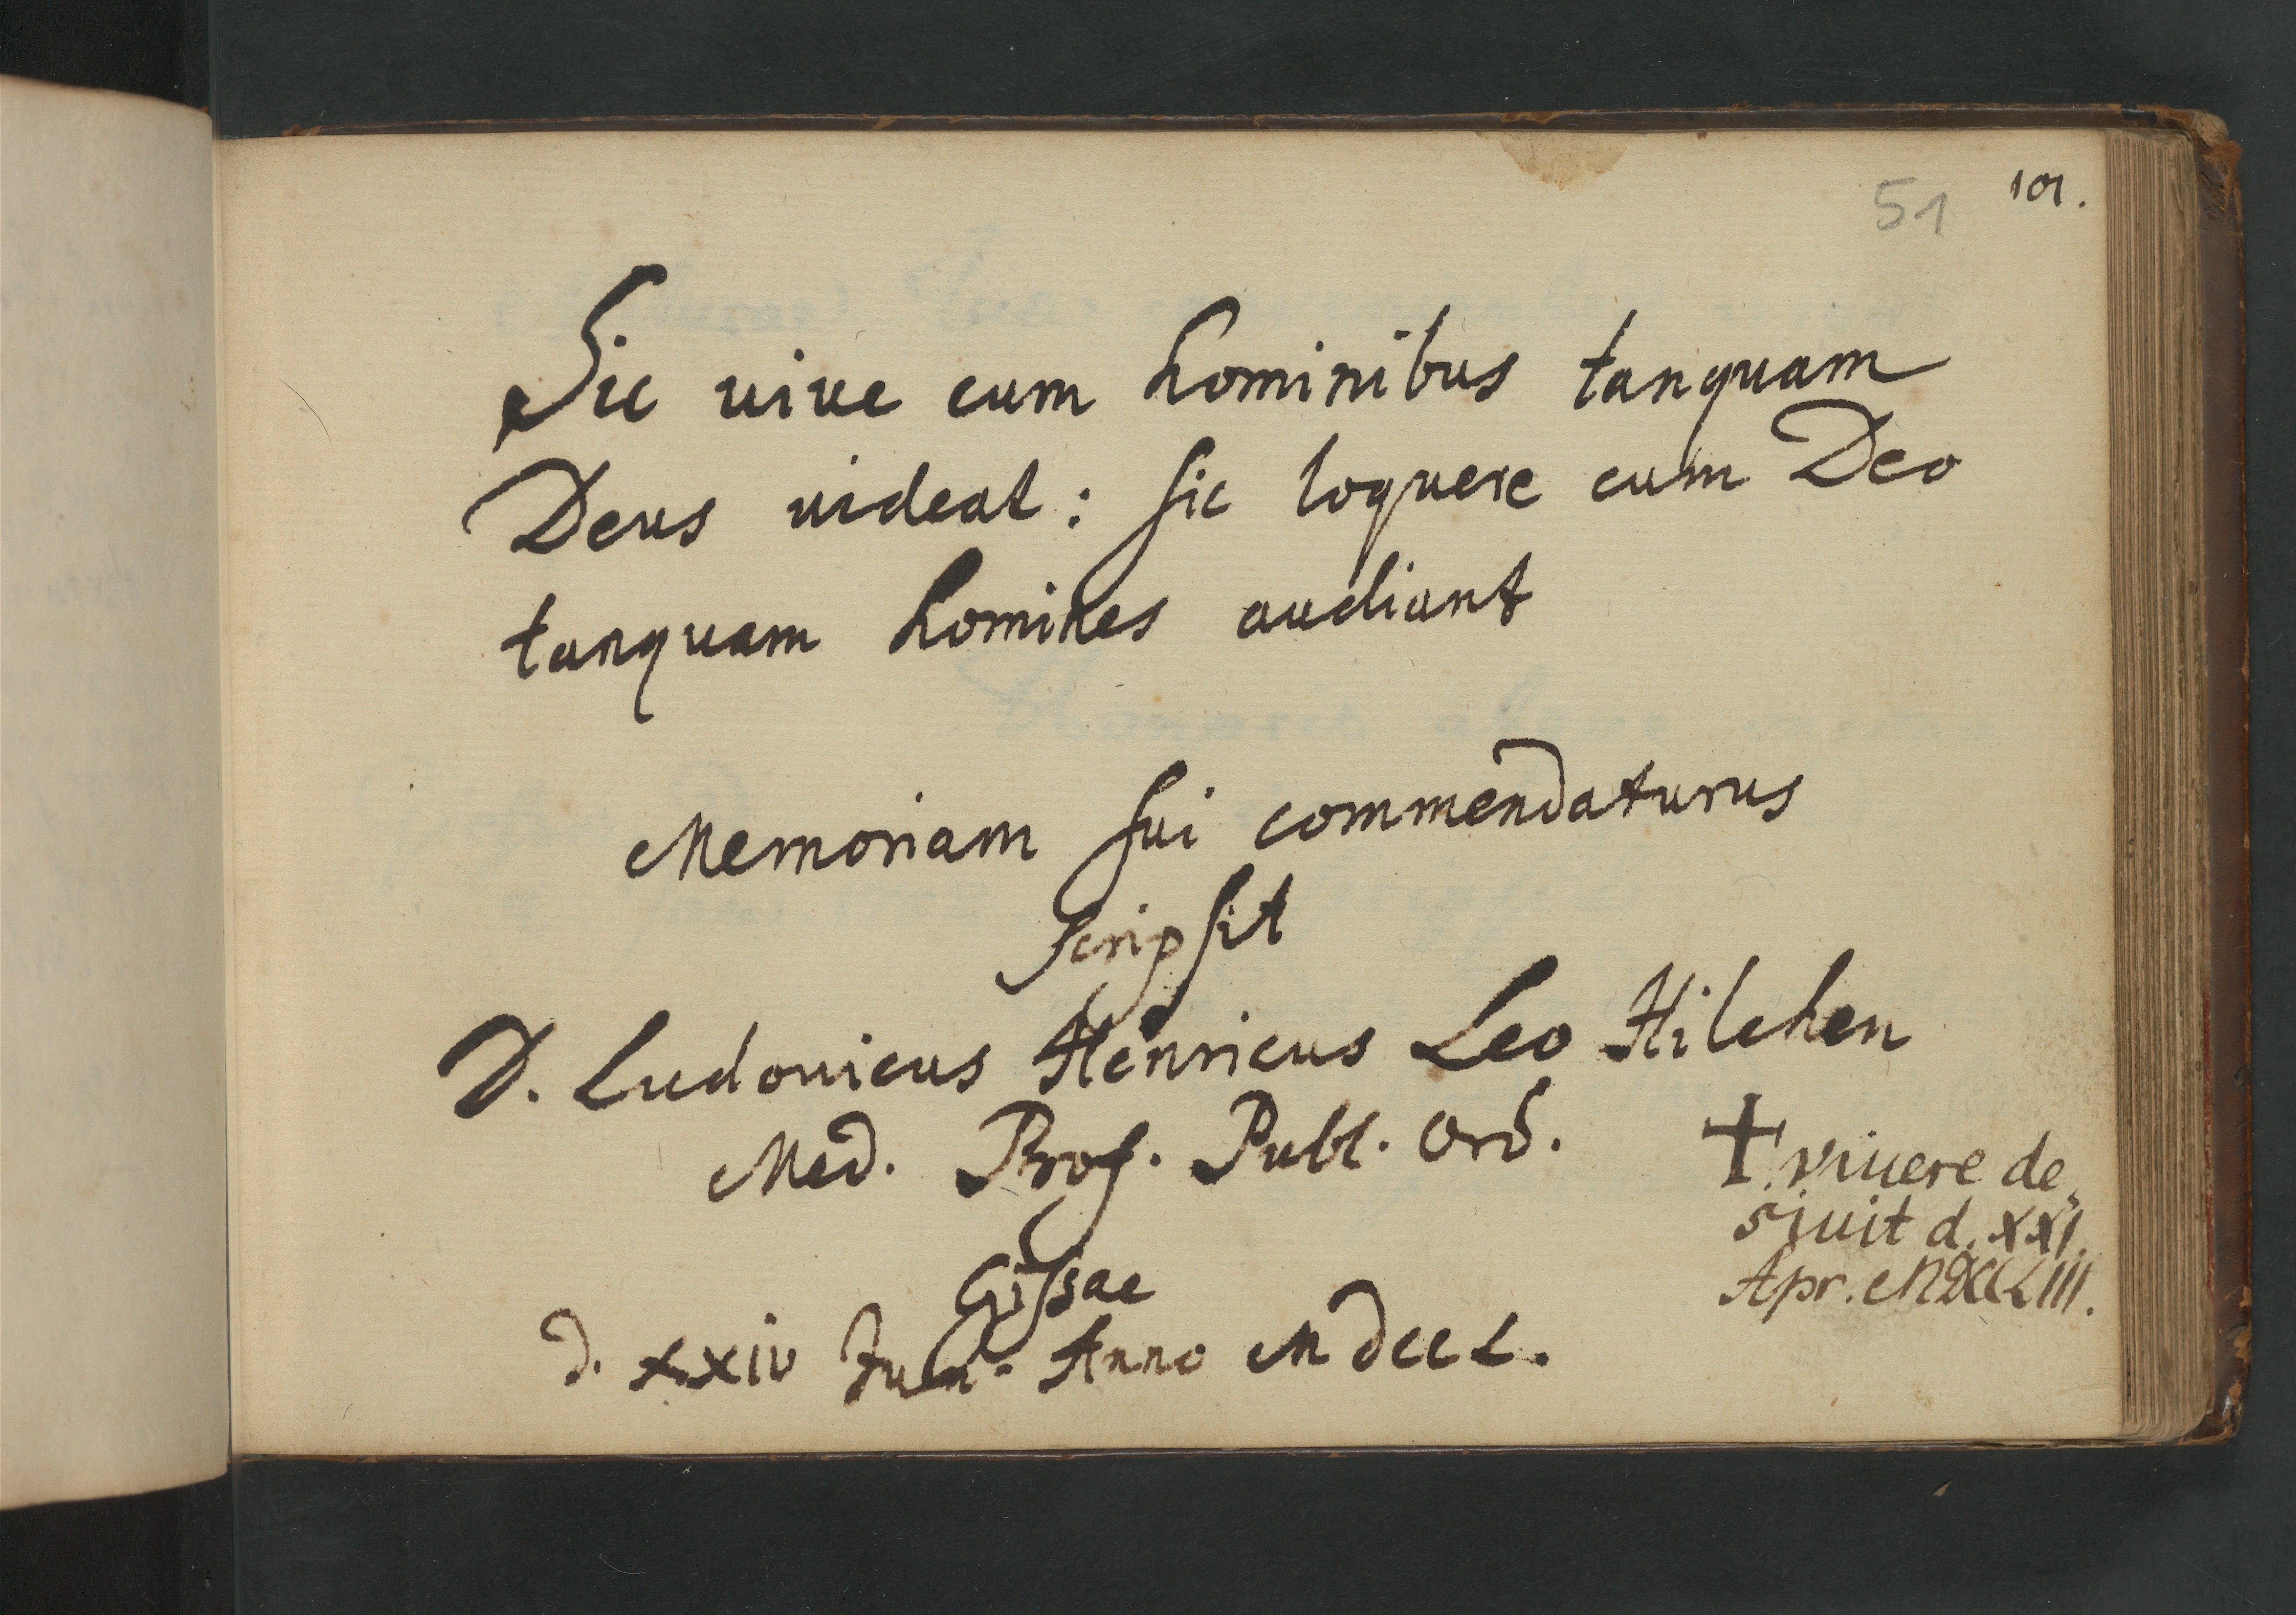 51 101.
Sic uiue cum hominibus tanquam
Deus uideat: sic loquere cum Deo
tanquam homines audiant
Memoriam sui commendaturus
scripsit
D. Ludouicus Henricus Leo Hilchen
Med. Prof. Publ. Ord.
Gissae
d. xxiv Jun. Anno MdccL.
† viuere de„
siuit d. XXI.
Apr. MDCCLIII.